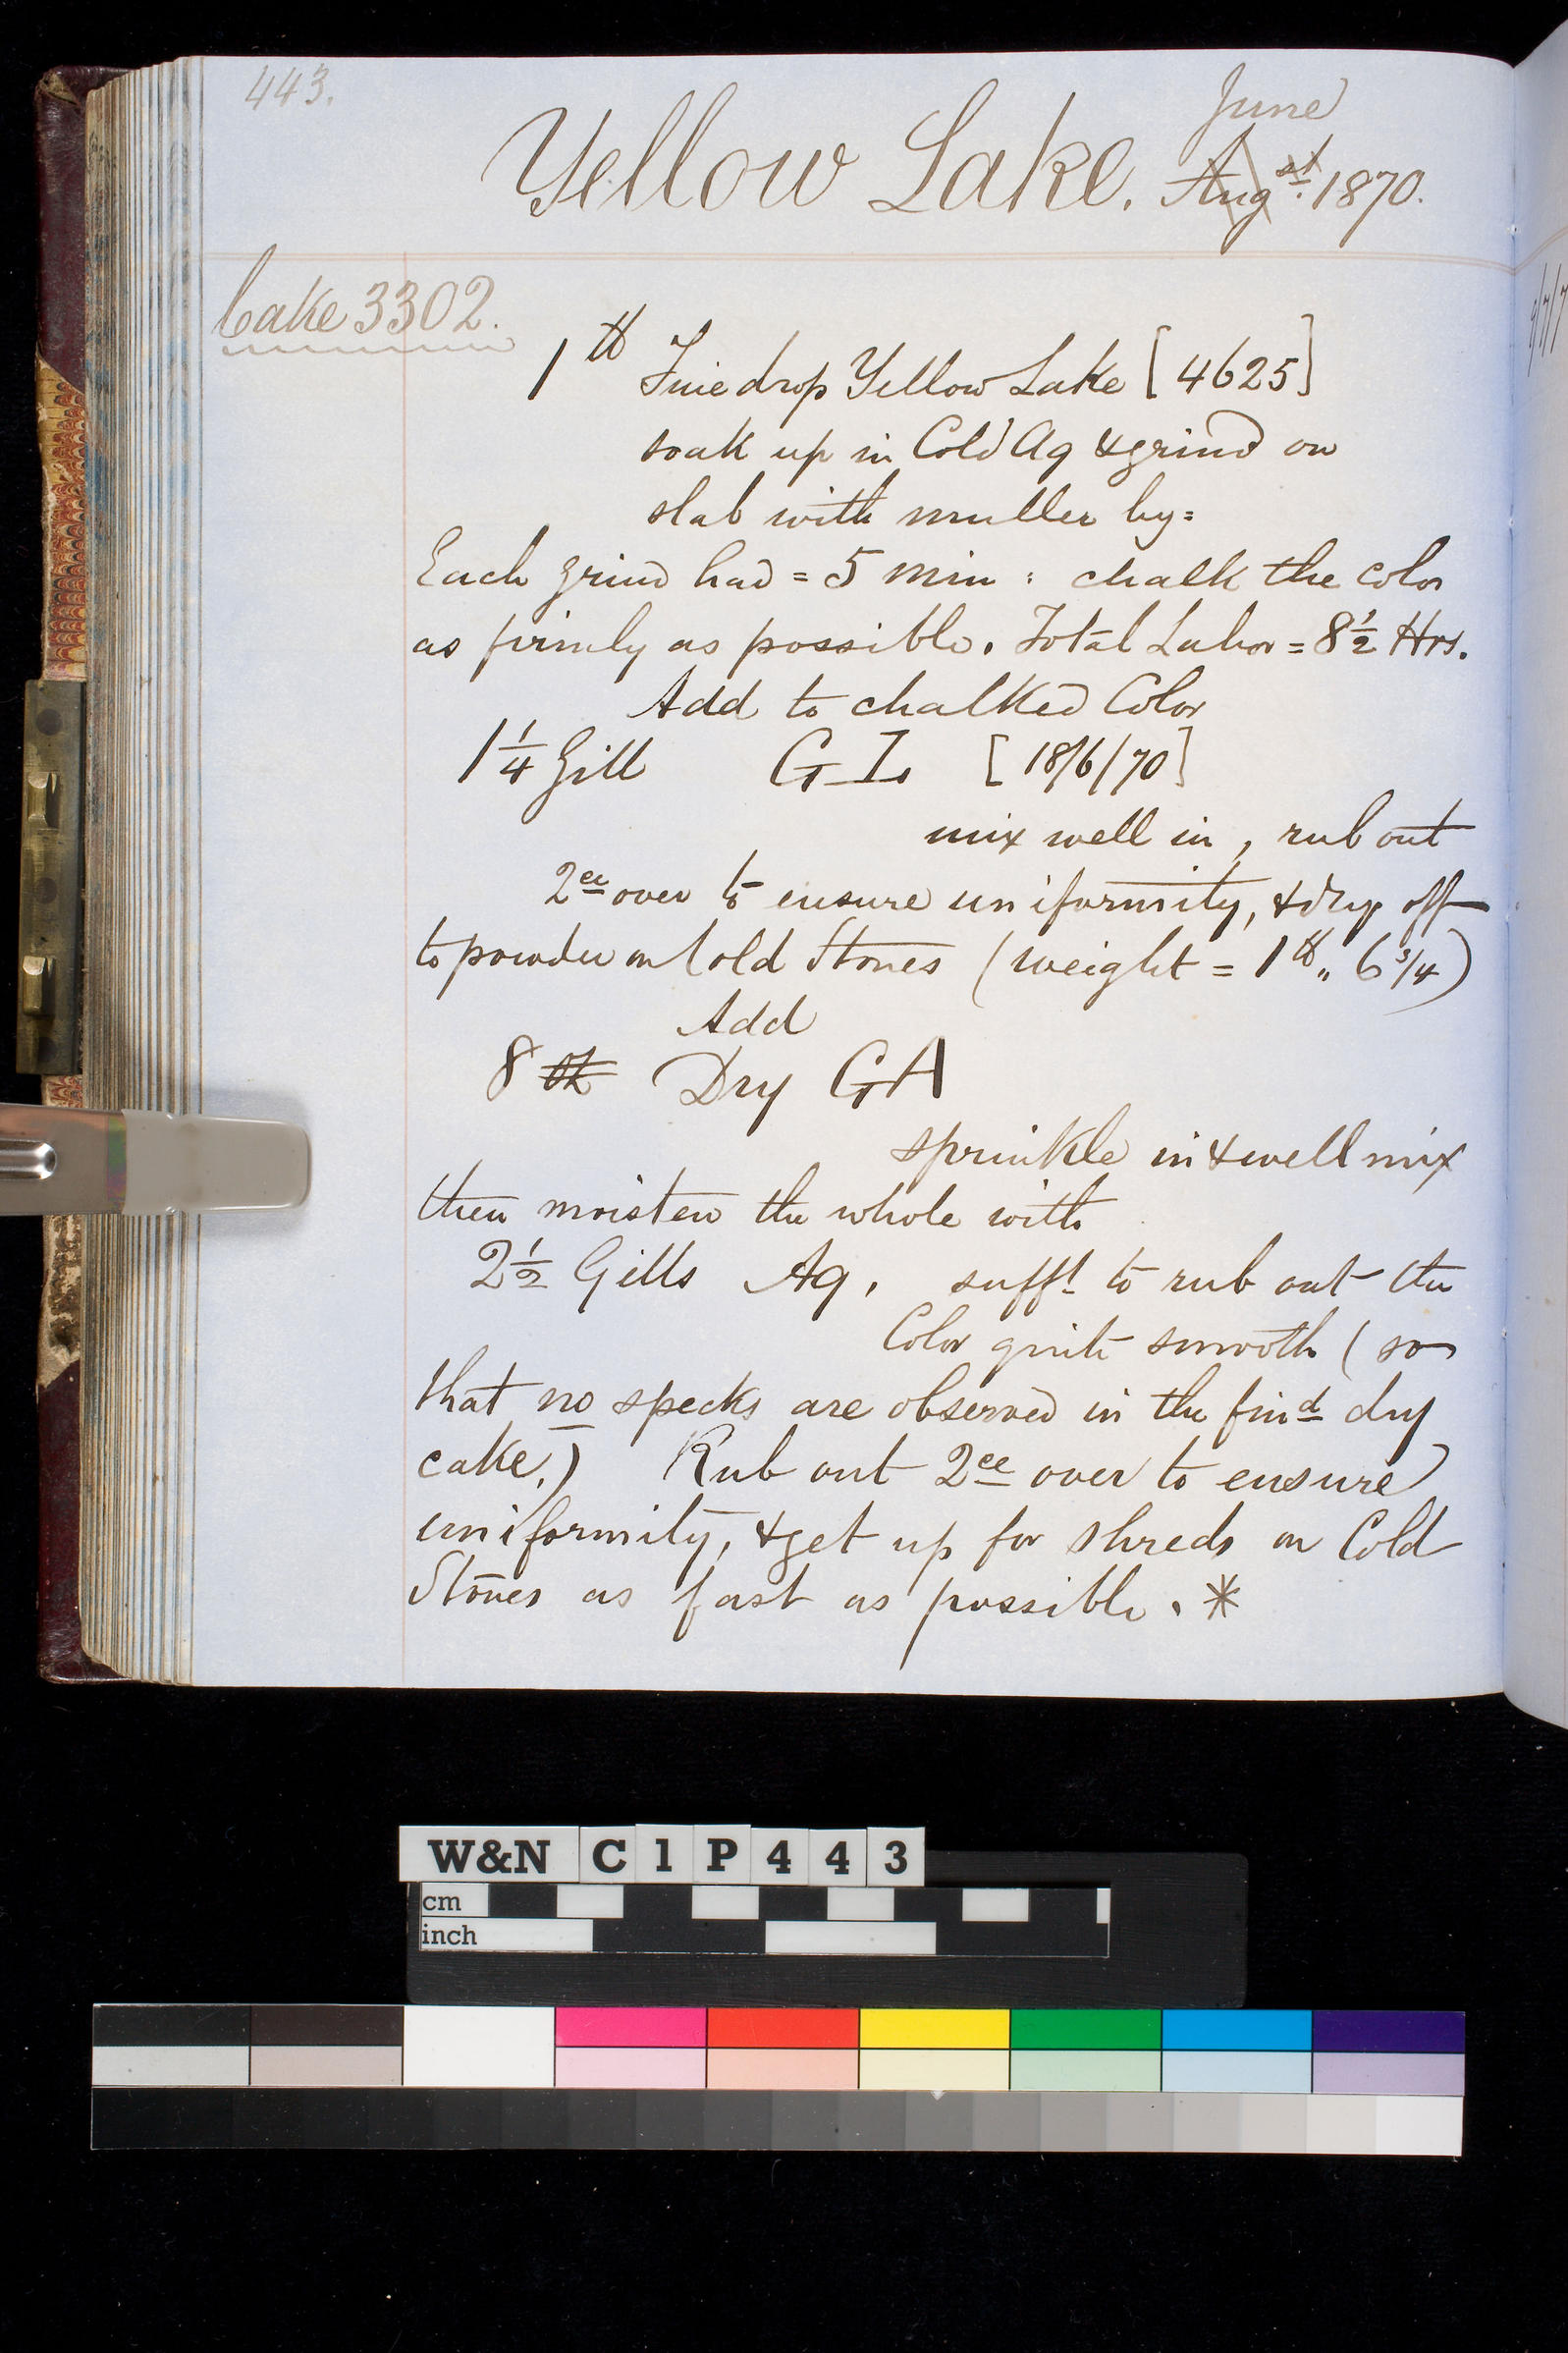 443.
June
Yellow Lake. Augst. 1870.
Cake 3302.
1 lb Fine drop Yellow Lake [4625]
soak up in Cold Aq & grind on
slab with muller by=
Each grind had = 5 min : chalk the color
as firmly as possible. Total Labor = 8½ Hrs.
Add to chalked Color
1¼ Gill G I. [18/6/70]
mix well in, rub out
2ce over to ensure uniformity, & dry off
to powder on Cold Stones (weight = 1 lb,, 6¾)
Add
8 oz Dry GA
sprinkle in & well mix
then moisten the whole with
2½ Gills Aq. sufft to rub out the
Color quite smooth (so
that no specks are observed in the find dry
cake.) Rub out 2ce over to ensure
uniformity, & get up for shreds on Cold
Stones as fast as possible. *
W&N C1P443
cm
inch